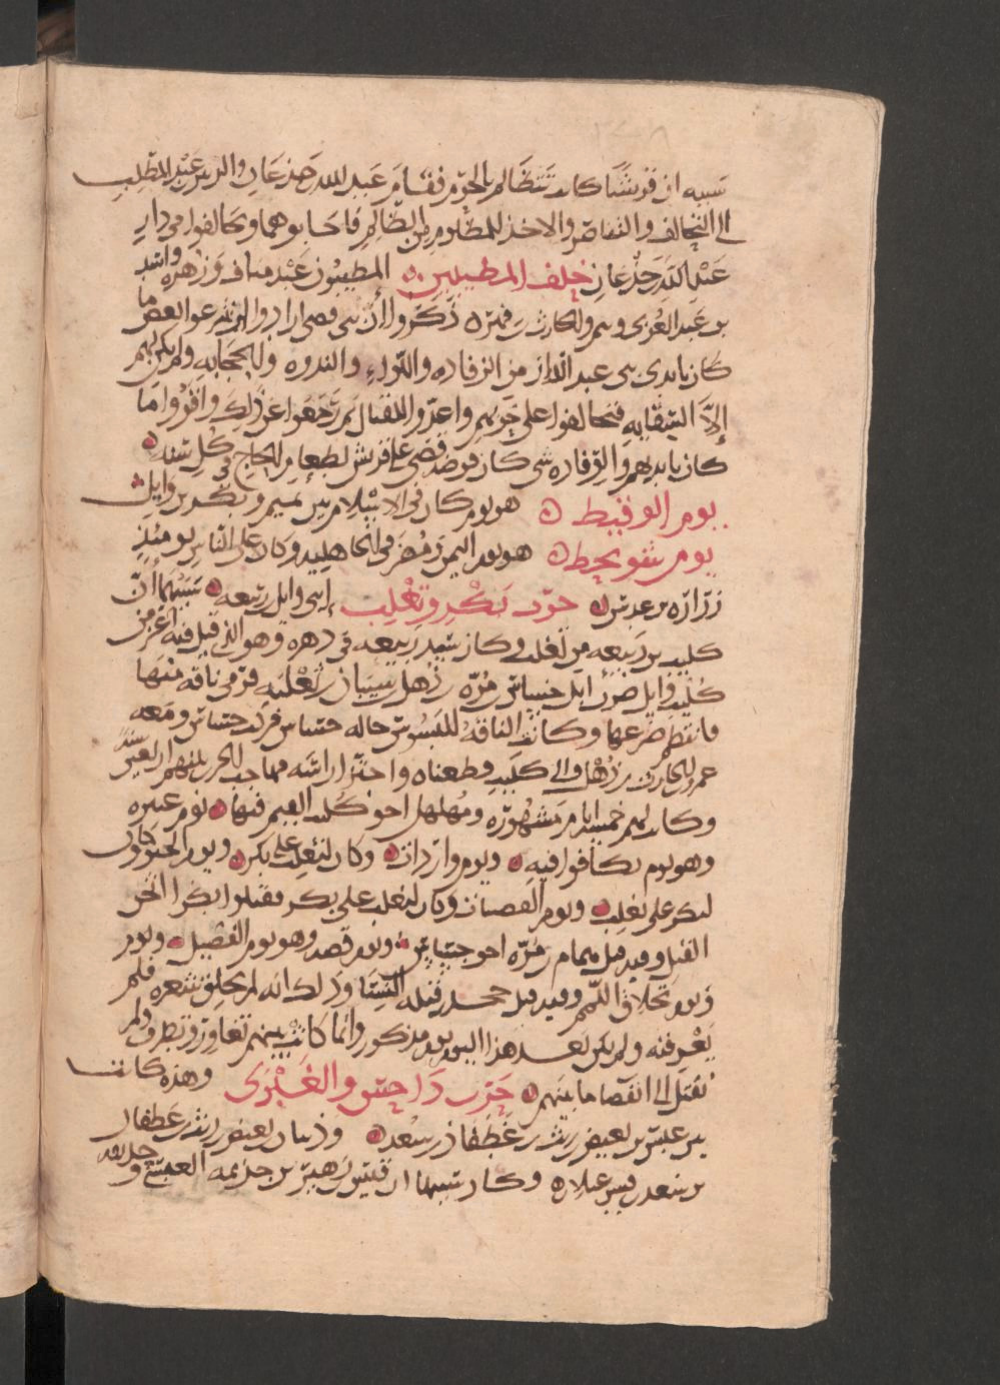 سببه ان قريشا كانت تتظالم بالحرم فقام عبد الله جدعان والزبير عبد المطلب
الى التحالف والتناصر والاخذ للمظلوم من الظالم فاجابوهما وتحالفوا في دار
عبد الله جدعان حلف المطيبين المطيبون عبد مناف وزهره واسد
بن عبد العزى وتيم والحارث بن فهر ذكروا ان بني قصي ارادوا ان ينتزعوا بعض ما
كان بايدي بني عبد الدار من الرفاده واللواء والندوه والحجابه ولم يكن لهم
الا السقايه فتحالفوا على حربهم واعدوا للقتال ثم رجعوا عن ذلك واقروا ما
كان بايديهم والرفاده شي كان فرضه قصي على قريش لطعام الحاج في كل سنه
يوم الوقيط هو يوم كان في الاسلام بين تميم وبكر بن وايل
يوم هو بعد اليمن ومضر في الجاهليه وكان على الناس يومئذ
زراره بن عدس حرب بكر وتغلب ابني وايل ربيعه سببها ان
كليب بن ربيعه من تغلب وكان سيد ربيعه في دهره وهو الذي قيل فيه اعز من
كليب وايل ابل جساس مره ذهل شيبان ثعلبه فرمى ناقه منها
فانتظم ضرعها وكانت الناقه للبسوس خاله جساس فركب جساس ومعه
عمرو الحارث بن ذهل الى كليب وطعناه واحتزا راسه الحرب بينهم اربعين سنه
وكانت لهم خمسه ايام مشهوره ومهلهل اخو كليب القيم فيها يوم عنيزه
وهو يوم تكافوا فيه ويوم واردات وكان لتغلب على بكر ويوم الحنو وكان
لبكر على تغلب ويوم القصيبات وكان لتغلب على بكر فقتلوا بكرا اثخن
القتل وفيه قتل همام بن مره اخو جساس ويوم قضه وهو يوم الفصيل ويوم
ويوم تحلاق اللمم وفيه قتل جحدر قتله النسا وذلك انه لم يحلق شعره فلم
يعرفنه ولم يكن بعد هذا اليوم يوم مذكور وانما كانت بينهم تغاور وتطرف ولم
تقتل الى انقضا ما بينهم حرب داحس والغبرى وهذه كانت
بين عبس بن بغيض ريث بن غطفان بن سعد وذبيان بغيض ريث بن غطفان
بن سعد بن قيس عيلان وكان سببها ان قيس زهير بن جذيمه العبسي و